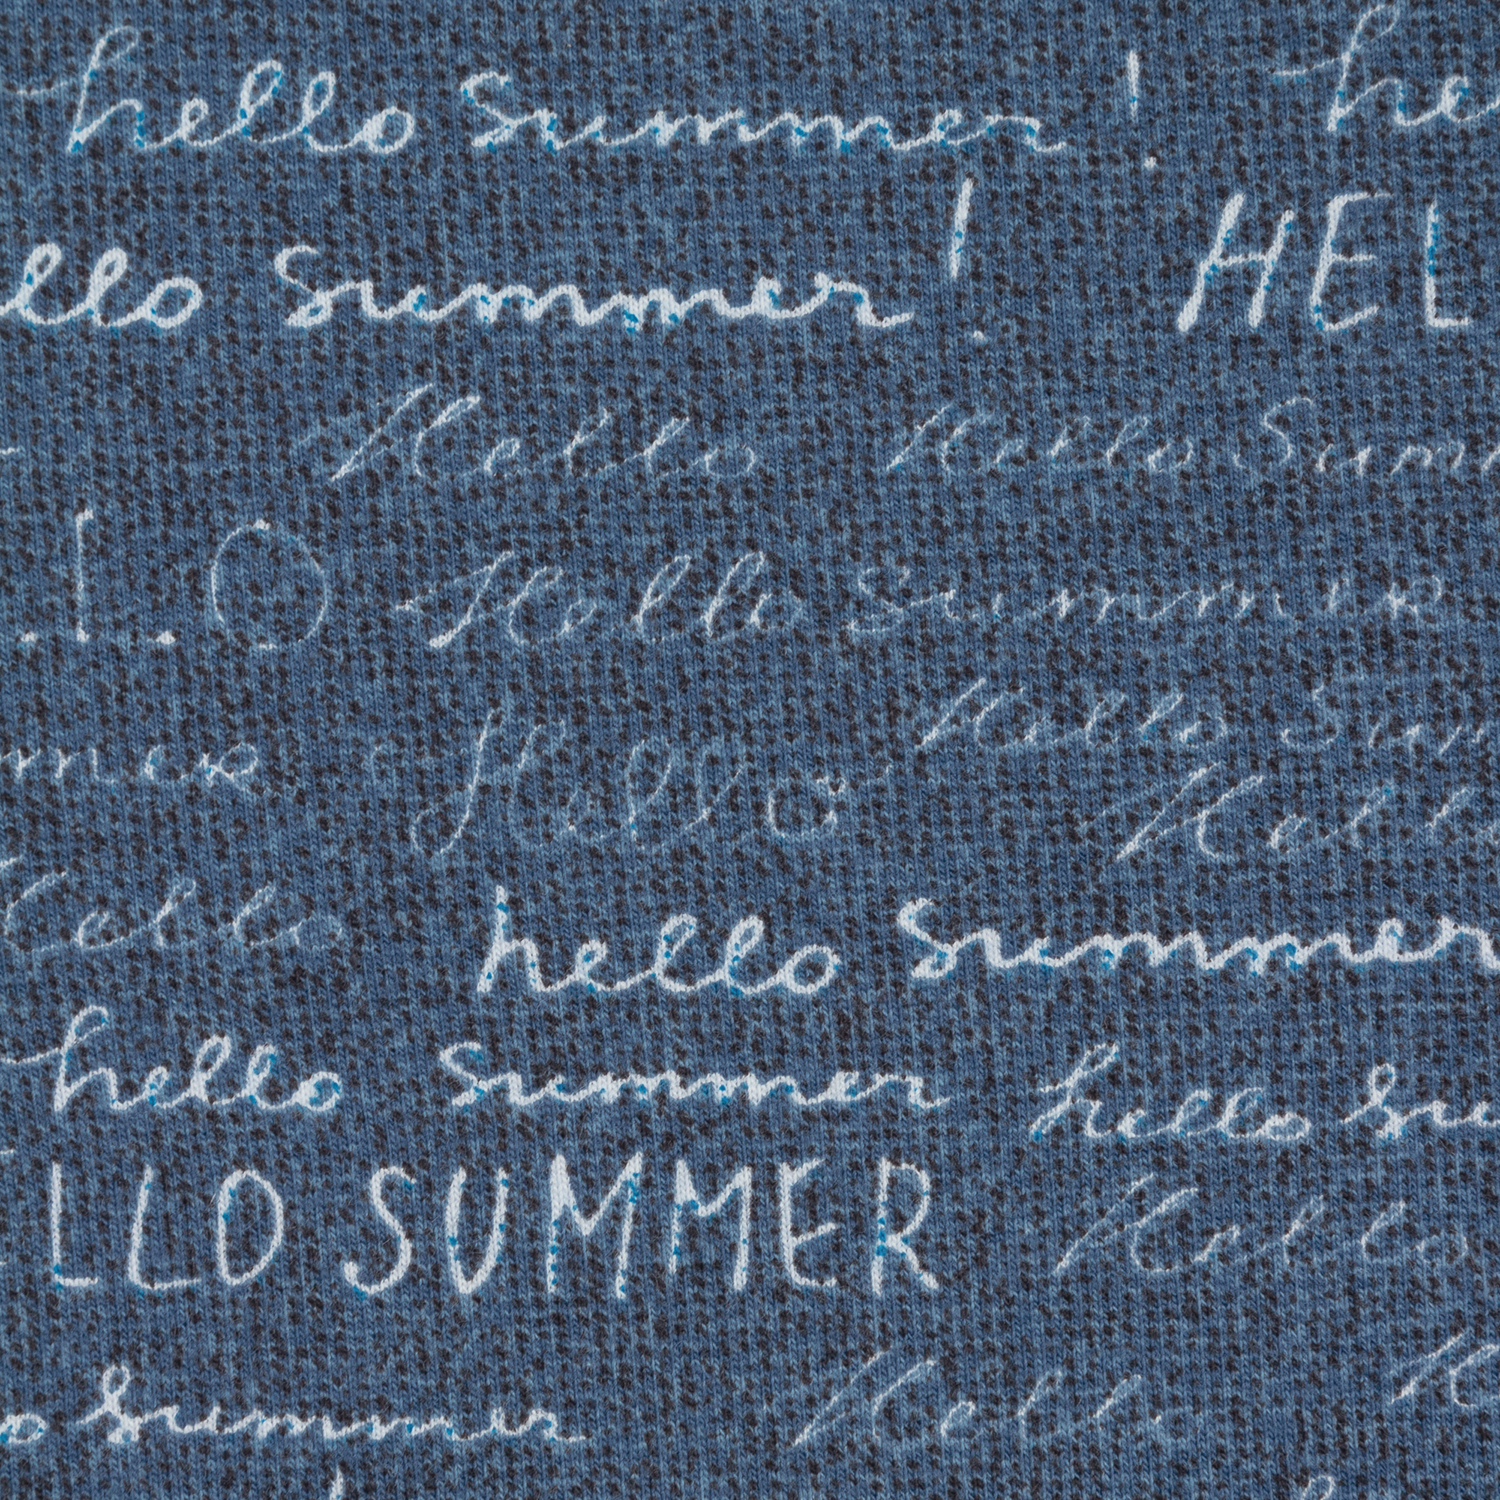 hello Summer! he
llo Summer! HEL
Hello Hello Summ
LO Hello Summer
mer Hello Hello Sum
Hello
Hello hello Summer
hello Summer hello Su
LLO SUMMER Hello
o Summer Hello H